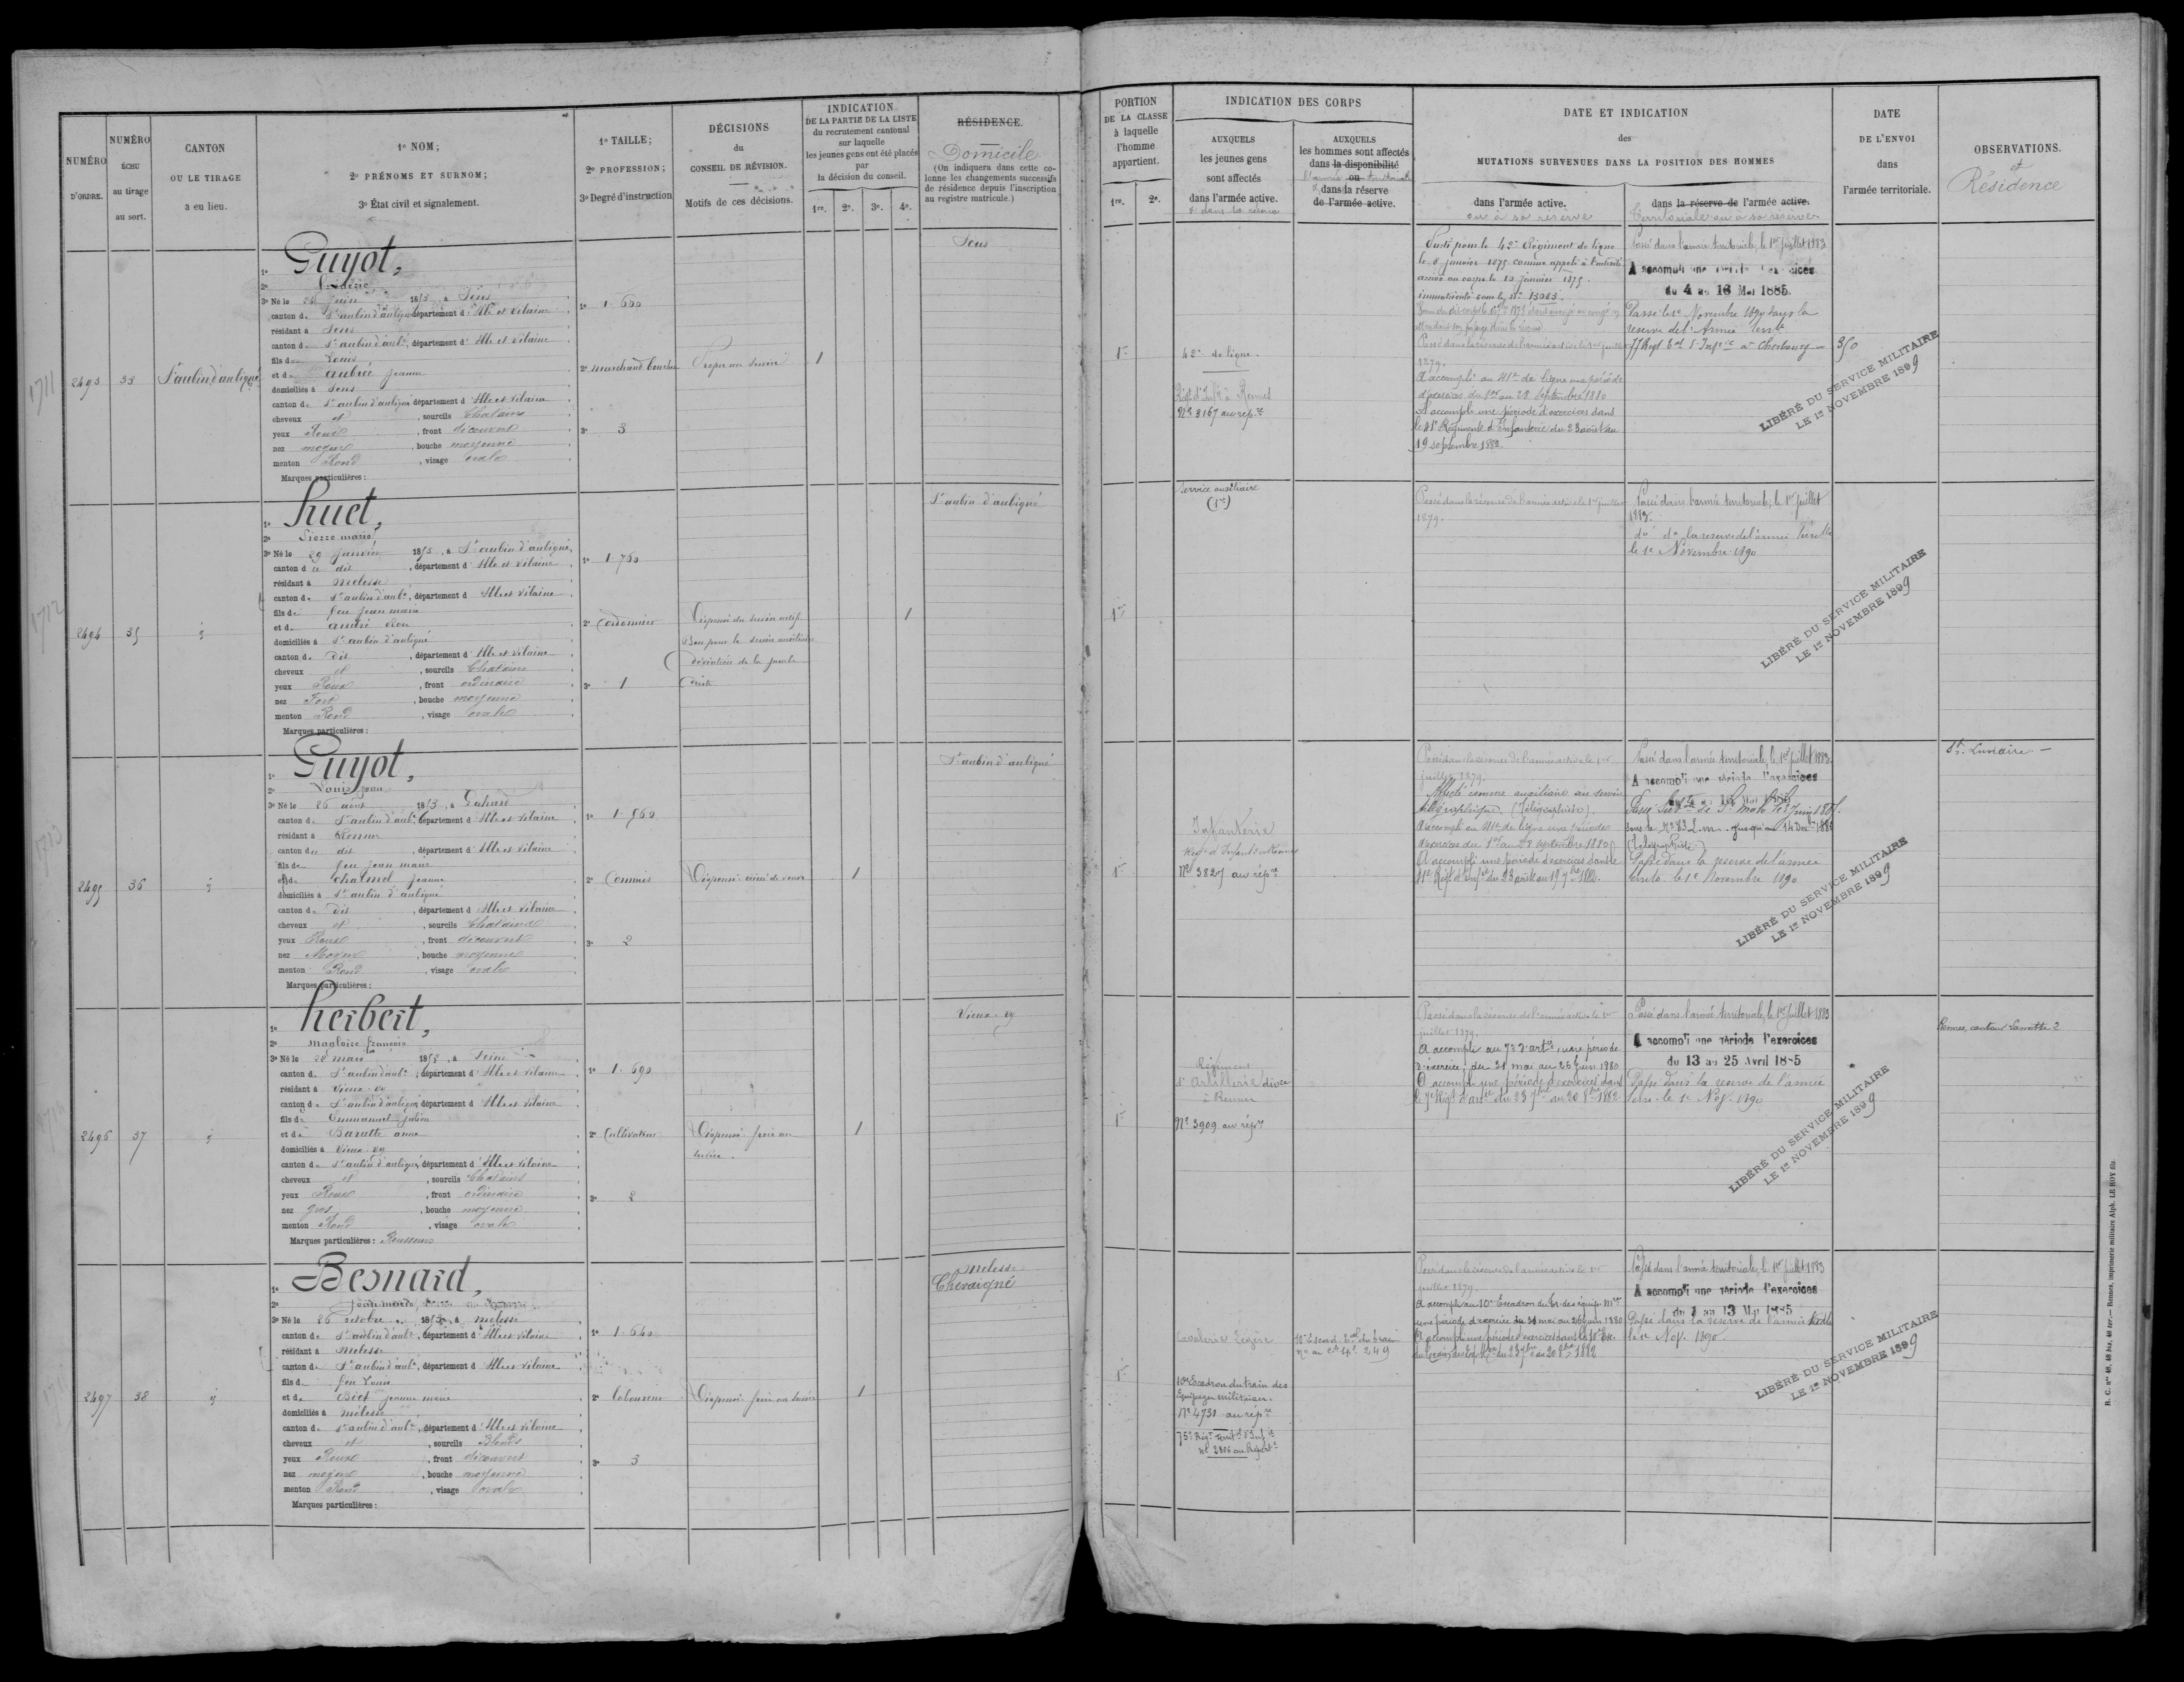 NUMÉRO
D'ORDRE.
NUMÉRO
ÉCHU
au tirage
au sort.
CANTON
OU LE TIRAGE
a eu lieu.
1º NOM;
2º PRÉNOMS ET SURNOM;
3º État civil et signalement.
1º TAILLE;
2º PROFESSION;
3º Degré d'instruction
DÉCISIONS
du
CONSEIL DE RÉVISION.
Motifs de ces décisions.
INDICATION
DE LA PARTIE DE LA LISTE
du recrutement cantonal
sur laquelle
les jeunes gens ont été placés
par
la décision du conseil.
1re. 2e. 3e. 4e.
RÉSIDENCE.
Domicile
(On indiquera dans cette co-
lonne les changements successifs
de résidence depuis l'inscription
au registre matricule.)
PORTION
DE LA CLASSE
à laquelle
l'homme
appartient.
1re. 2e.
INDICATION DES CORPS
AUXQUELS
les jeunes gens
sont affectés
dans l'armée active.
et dans la réserve
AUXQUELS
les hommes sont affectés
dans la disponibilité
ou
dans la réserve
de l'armée active.
DATE ET INDICATION
des
MUTATIONS SURVENUES DANS LA POSITION DES HOMMES
dans l'armée active.
ou à sa réserve
dans la réserve de l'armée active.
Territoriale ou à sa réserve
DATE
DE L'ENVOI
dans
l'armée territoriale.
OBSERVATIONS.
et
Résidence
1711
2493
33
St aubin d'aubigné
1º Guyot,
2º
3º Né le 24 Juin 1853, à Sens
canton de St aubin d'aubigné département d'Ille et Vilaine
résidant à Sens
canton de St aubin d'aubé, département d'Ille et Vilaine
fils de Louis
et de aubrée jeanne
domiciliés à Sens
canton de St aubin d'aubigné département d'Ille et Vilaine
cheveux et, sourcils Chatains
yeux Roux, front découvert
nez moyen, bouche moyenne
menton Rond, visage ovale
Marques particulières:
1º 1.600
2º marchand boucher
3º 3
Propre au service
1
Sens
1re
42e de ligne.
Régt d'Infie à Rennes
No 3167 au répre
Porté pour le 42e Régiment de ligne
le 8 janvier 1875 comme appelé à l'activité
arrivé au corps le 10 janvier 1875.
immatriculé sous le No 13083.
Passé dans la réserve de l'armée active le 1er juillet
1879.
A accompli au 41e de ligne une période
d'exercices du 1er au 28 Septembre 1880
A accompli une période d'exercices dans
le 41e Régiment d'Infanterie du 23 août au
19 septembre 1882.
Passé dans l'armée territoriale, le 1er juillet 1883
A accompli une période d'exercices
du 4 au 16 Mai 1885.
Passé le 1e Novembre 1890 dans la
reserve de l'Armée terrle
à Cherbourg
350
LIBÉRÉ DU SERVICE MILITAIRE
LE 1er NOVEMBRE 1899
1712
2494
35
1º huet,
2º Pierre marie
3º Né le 29 Janvier 1853, à St aubin d'aubigné
canton du dit, département d'Ille et Vilaine
résidant à Melesse
canton de St aubin d'aubé, département d'Ille et Vilaine
fils de feu jean marie
et de andré
domiciliés à St aubin d'aubigné
canton de dit, département d'Ille et Vilaine
cheveux et, sourcils Chatains
yeux Roux, front ordinaire
nez Fort, bouche moyenne
menton Rond, visage ovale
Marques particulières:
1º 1.760
2º Cordonnier
3º 1
Dispensé du service actif
Bon pour le service auxiliaire
déviation de la jambe
droite
1
St aubin d'aubigné
1re
Service auxiliaire
(1re)
Passé dans la réserve de l'armée active le 1er juillet
1879.
Passé dans l'armée territoriale, le 1er juillet
1883.
do da la reserve de l'armée Terrlle
le 1e Novembre 1890
LIBÉRÉ DU SERVICE MILITAIRE
LE 1er NOVEMBRE 1899
1713
2495
36
1º Guyot,
2º Louis jean
3º Né le 26 août 1853, à Gahard
canton de St aubin d'aubé, département d'Ille et Vilaine
résidant à Rennes
canton du dit, département d'Ille et Vilaine
fils de feu jean marie
et de chalmel jeanne
domiciliés à St aubin d'aubigné
canton de dit, département d'Ille et Vilaine
cheveux et, sourcils Chatains
yeux Roux, front découvert
nez Moyen, bouche moyenne
menton Rond, visage ovale
Marques particulières:
1º 1.560
2º Commis
3º 2
Dispensé ainé de veuve
1
St aubin d'aubigné
1re
Infanterie
Régt d'Infant. à Rennes
No 3825 au répre
Passé dans la réserve de l'armée active le 1er
juillet 1879.
Affecté comme auxiliaire au service
télégraphique (Télégraphiste).
A accompli au 41e de ligne une période
d'exercices du 1er au 28 septembre 1880
A accompli une période d'exercices dans le
41e Régt d'Infie du 23 août au 19 7bre 1882.
Passé dans l'armée territoriale, le 1er juillet 1883.
A accompli une période d'exercices
(Télégraphiste)
Passé dans la reserve de l'armée
territo. le 1e Novembre 1890
St. Lunaire
LIBÉRÉ DU SERVICE MILITAIRE
LE 1er NOVEMBRE 1899
2496
37
1º herbert,
2º Magloire françois
3º Né le 28 mars 1853, à
canton de St aubin d'aubé, département d'Ille et Vilaine
résidant à Vieux-vy
canton de St aubin d'aubigné département d'Ille et Vilaine
fils de Emmanuel Julien
et de Baratte anne
domiciliés à Vieux-vy
canton de St aubin d'aubigné, département d'Ille et Vilaine
cheveux et, sourcils Chatains
yeux Roux, front ordinaire
nez gros, bouche moyenne
menton Rond, visage ovale
Marques particulières: Rousseurs
1º 1.690
2º Cultivateur
3º 2
Dispensé frère au
service.
1
Vieux-vy
1re
Régiment
d'Artillerie divre
à Rennes
No 3909 au répre
Passé dans la réserve de l'armée active le 1er
juillet 1879.
A accompli au 7e d'artie une période
d'exercices du 31 mai au 26 Juin 1880
A accompli une période d'exercices dans
le 7e Régt d'artie du 23 7bre au 20 8bre 1882
Passé dans l'armée territoriale, le 1er juillet 1883
A accompli une période d'exercices
du 13 au 25 Avril 1885
Passé dans la reserve de l'armée
terre. le 1e Nov. 1890
Rennes, canton Lamotte 2
LIBÉRÉ DU SERVICE MILITAIRE
LE 1er NOVEMBRE 1899
2497
38
1º Besnard,
2º Jean marie
3º Né le 26 octobre 1853, à melesse
canton de St aubin d'aubé, département d'Ille et Vilaine
résidant à Melesse
canton de St aubin d'aubé, département d'Ille et Vilaine
fils de feu Louis
et de Biet jeanne marie
domiciliés à mélesse
canton de St aubin d'aubé, département d'Ille et Vilaine
cheveux et, sourcils Blonds
yeux Roux, front découvert
nez moyen, bouche moyenne
menton Rond, visage ovale
Marques particulières:
1º 1.640
2º Laboureur
3º 3
Dispensé frère au service
1
Melesse
Chevaigné
1re
Cavalerie légère
10e Escadron du train des
Equipages militaires.
No 4731 au répre
75e Régt Territ. d'Infie
No 2806 au Répert.
10e Escad. du train
249
Passé dans la réserve de l'armée active le 1er
juillet 1879.
A accompli au 10e Escadron du tr. des équip. mres
une période d'exercices du 31 mai au 26 juin 1880
A accompli une période d'exercices dans le 10e Esc.
du 23 7bre au 20 8bre 1882
Passé dans l'armée territoriale, le 1er juillet 1883
A accompli une période d'exercices
du 1 au 13 Mai 1885
Passé dans la reserve de l'armée territle
le 1e Nov. 1890.
LIBÉRÉ DU SERVICE MILITAIRE
LE 1er NOVEMBRE 1899
R. C. nos 48, 48 bis, 48 ter. — Rennes, imprimerie militaire Alph. LE ROY fils